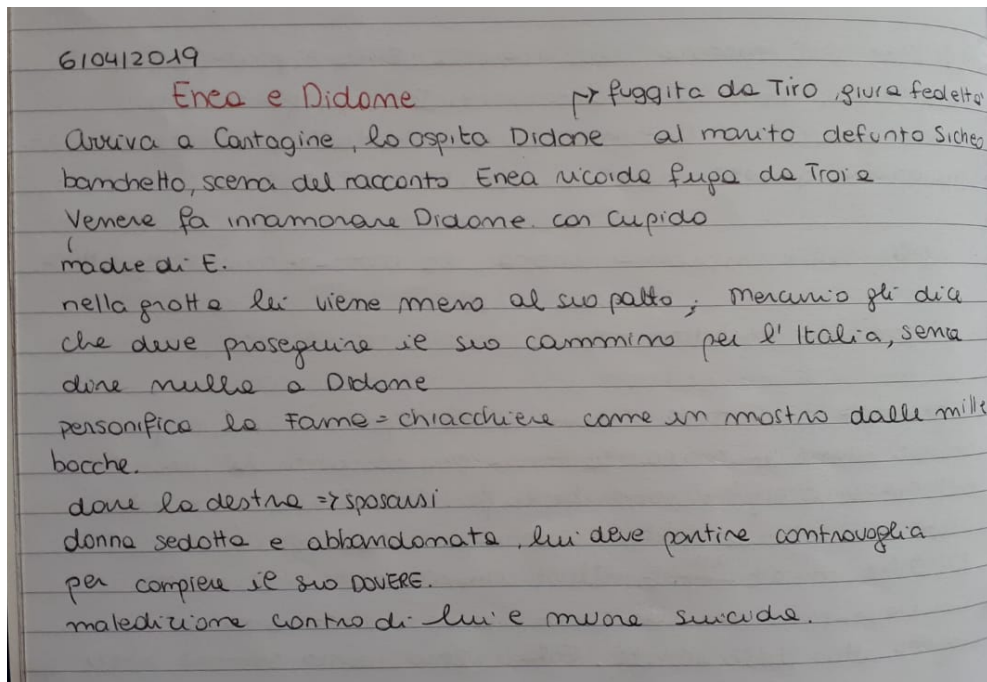 6/04/2019
Enea e Didone
↱ fuggita da Tiro, giura fedeltà
Arriva a Cartagine, lo ospita Didone al marito defunto Sicheo
banchetto, scena del racconto Enea ricorda fuga da Troia
Venere fa innamorare Didone con Cupido
madre di E.
nella grotta lei viene meno al suo patto; Mercurio gli dice
che deve proseguire il suo cammino per l'Italia, senza
dire nulla a Didone
personifica la Fama = chiacchiere come un mostro dalle mille
bocche.
dare la destra => sposarsi
donna sedotta e abbandonata, lui deve partire controvoglia
per compiere il suo DOVERE.
maledizione contro di lui e muore suicida.